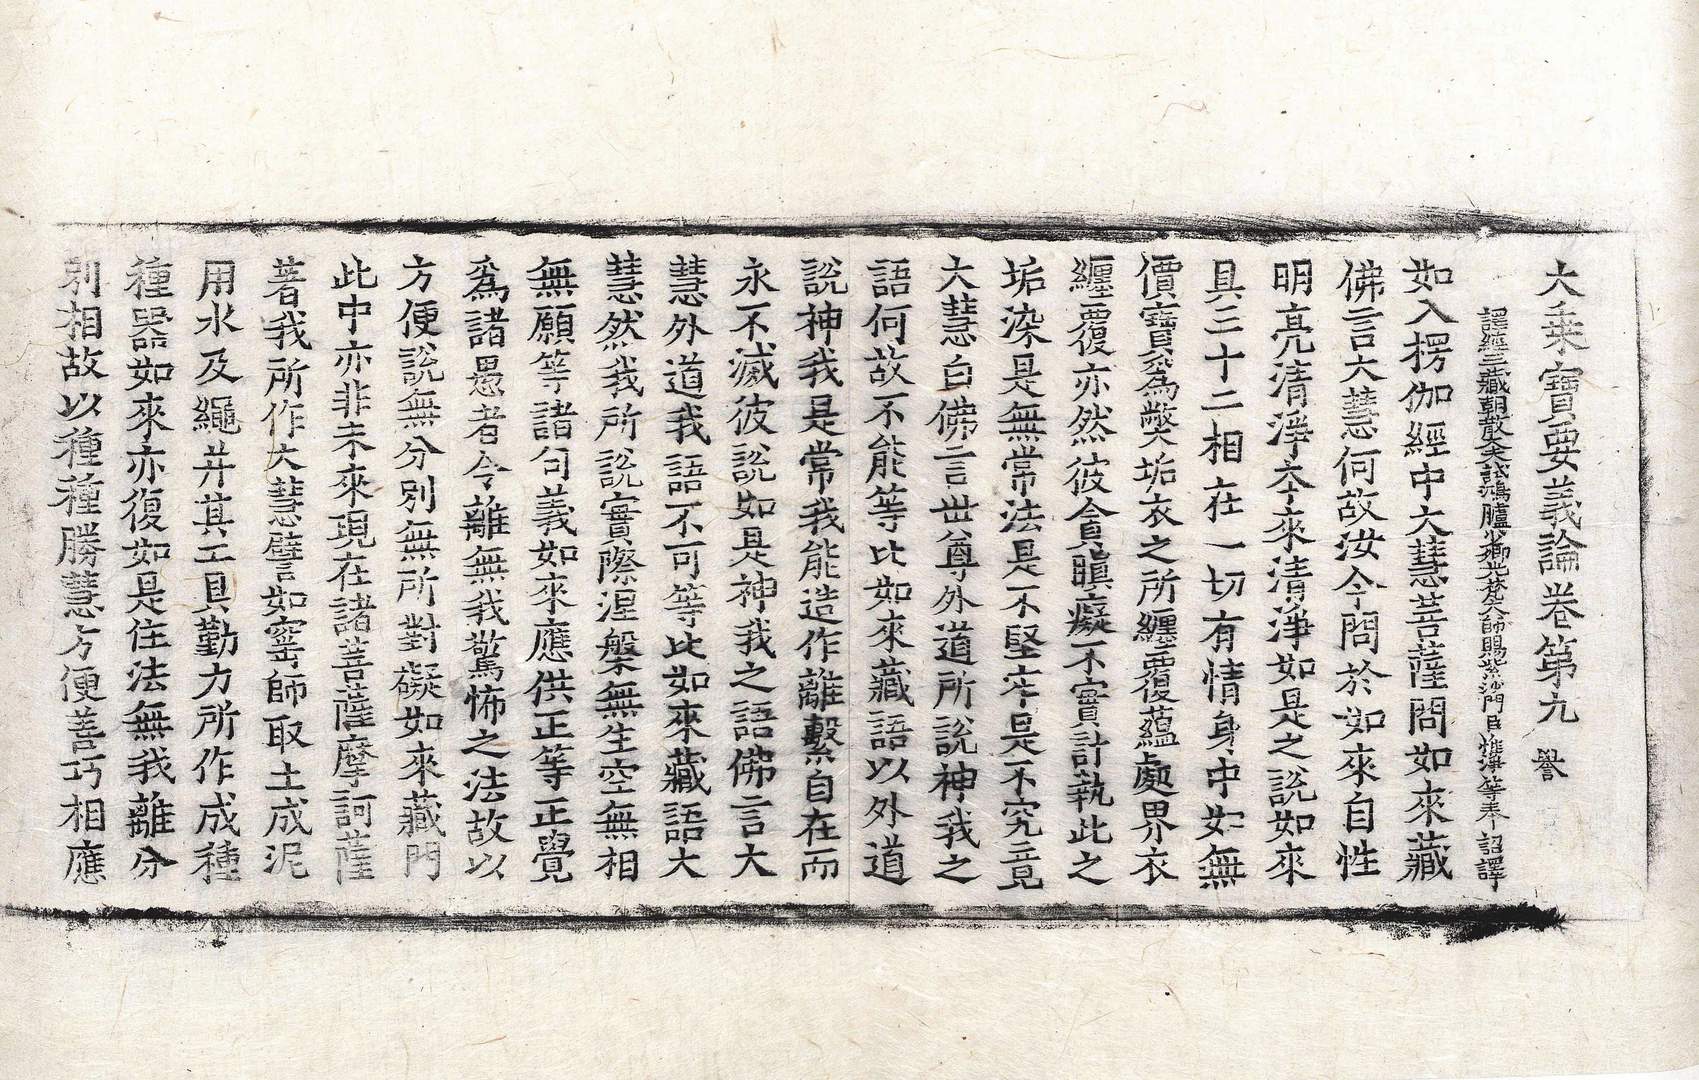 大乗寶要義論卷第九　譽
譯經三藏朝散大夫試鴻臚少卿光梵大師賜紫沙門臣惟淨等奉詔譯
如入楞伽經中大慧菩薩問如來藏
佛言大慧何故汝今問於如來自性
明亮清淨夲來清淨如是之說如來
具三十二相在一切有情身中如無
價寶爲弊垢衣之所纏覆蘊處界衣
纏覆亦然彼貪瞋癡不實計執此之
垢染是無常法是不堅牢是不究竟
大慧白佛言世尊外道所說神我之
語何故不能等比如來藏語以外道
說神我是常我能造作離繫自在而
永不滅彼說如是神我之語佛言大
慧外道我語不可等比如來藏語大
慧然我所說實際涅槃無生空無相
無願等諸句義如來應供正等正覺
爲諸愚者令離無我驚怖之法故以
方便說無分別無所對礙如來藏門
此中亦非未來現在諸菩薩摩訶薩
著我所作大慧譬如窰師取土成泥
用水及繩并其工具勤力所作成種
種器如來亦復如是住法無我離分
别相故以種種勝慧方便善巧相應